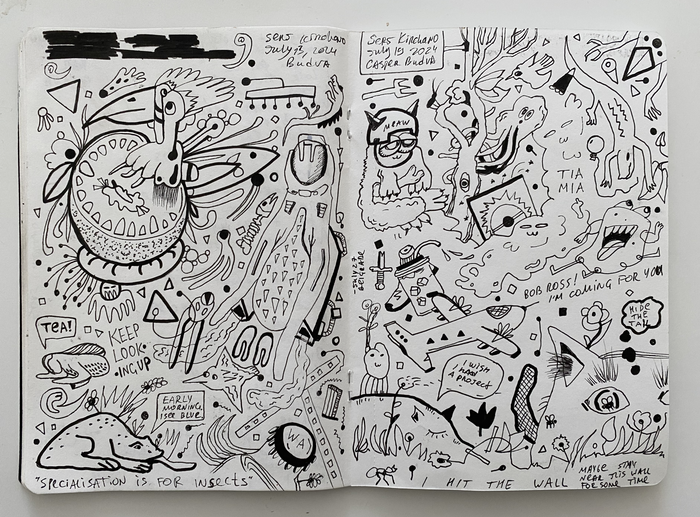 July 13, 2024
Budva
TEA!
KEEP
LOOK-
ING UP
EARLY
MORNING,
I SEE BLUE
WA
"SPECIALISATION IS FOR INSECTS"
SERS KIRCHANO
JULY 19 2024
CASPER BUDVA
MRAW
TIA
MIA
JULY 27
BELGRADE
BOB ROSS!
I'M COMING FOR YOU
HIDE
THE
TAIL
I WISH
I HAD
A PROJECT
I HIT THE WALL
MAYBE STAY
NEAR THIS WALL
FOR SOME TIME